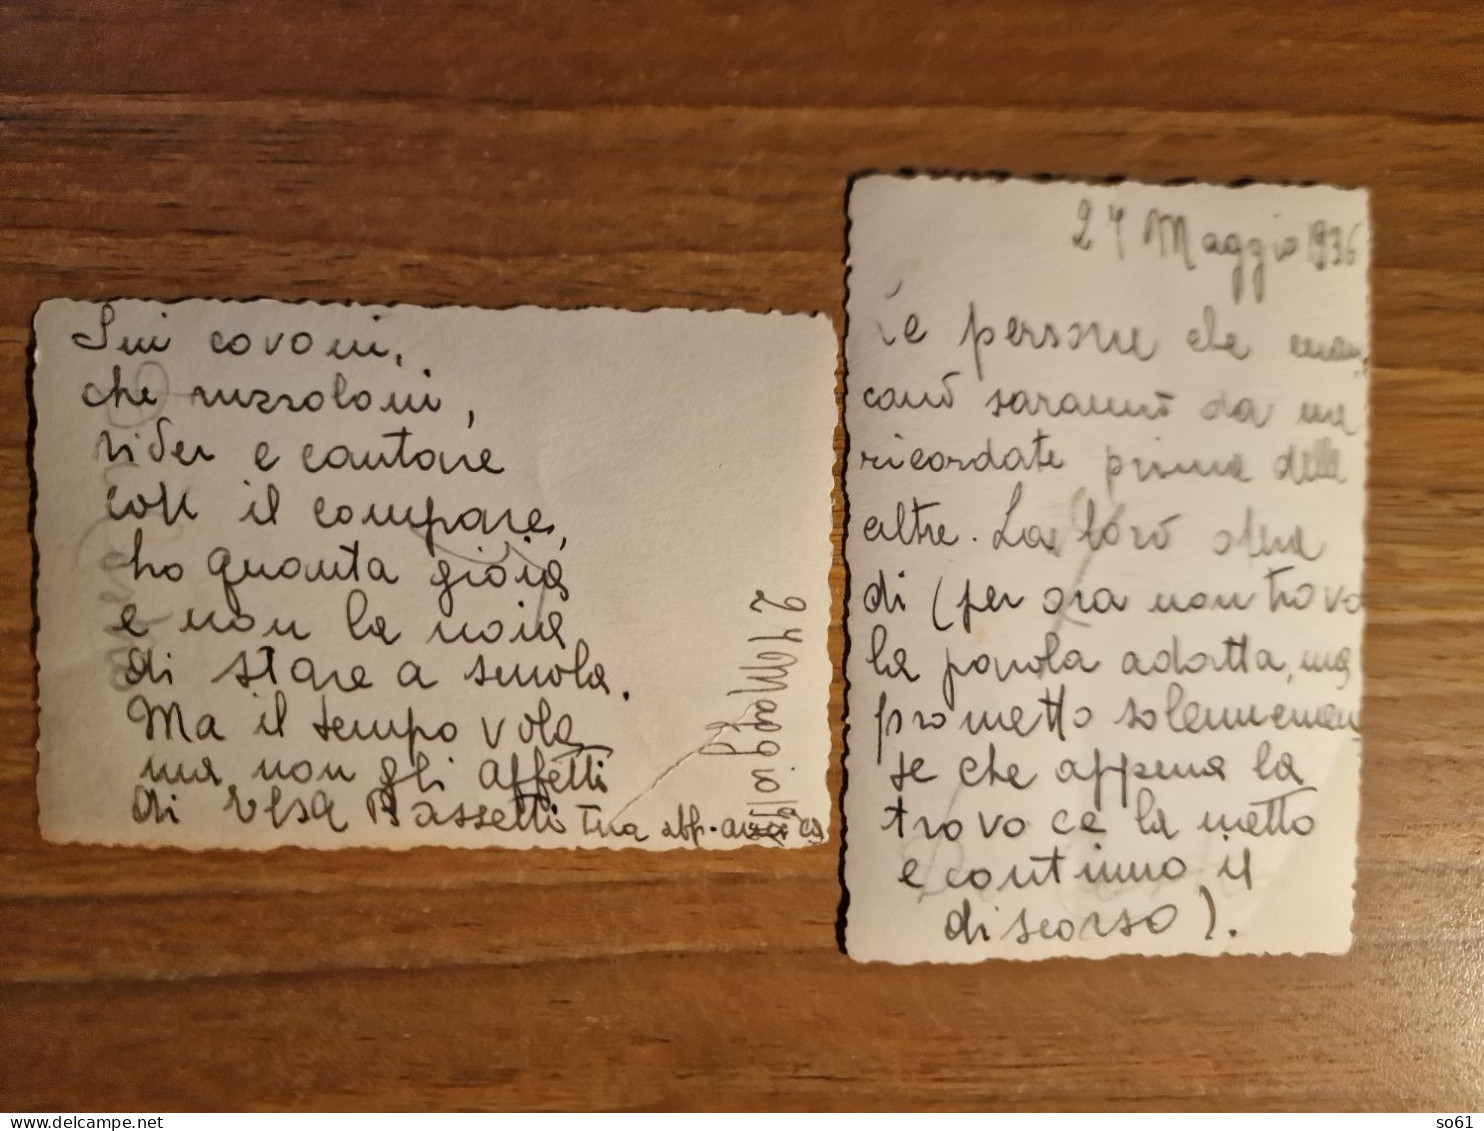 Sui covoni,
che ruzzoloni,
rider e cantare
con il compare,
ho quanta gioia
e non la noia
di stare a scuola.
Ma il tempo vola
ma non gli affetti
di Elsa Bassetti tua aff.
24 Maggio 19
24 Maggio 1936
Le persone che man
canò sarannò da me
ricordate prima delle
altre. La lorò
di (per ora non trovo
la parola adatta, ma
prometto solennemen
te che appena la
trovo ce la metto
e continuo il
discorso).
www.delcampe.net
so61